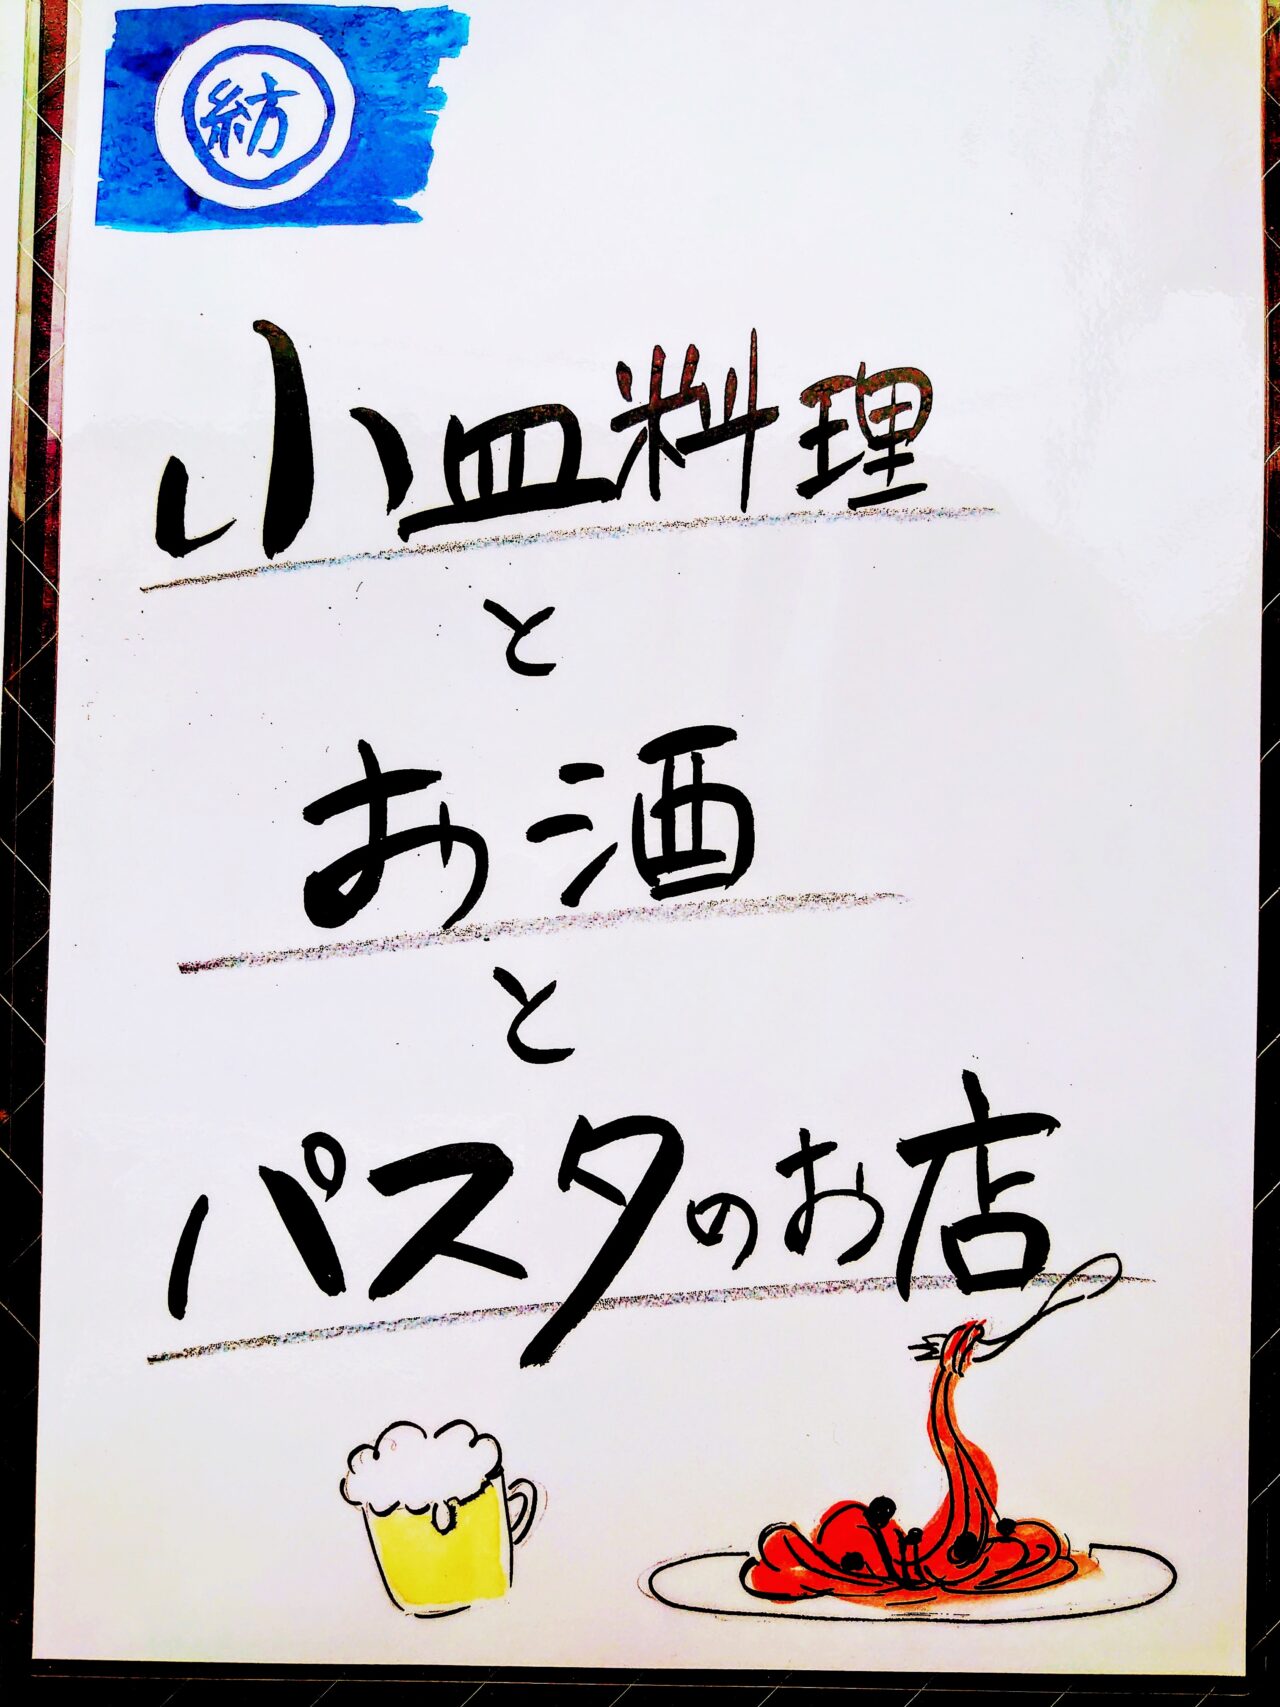 紡
小皿料理
と
お酒
と
パスタのお店